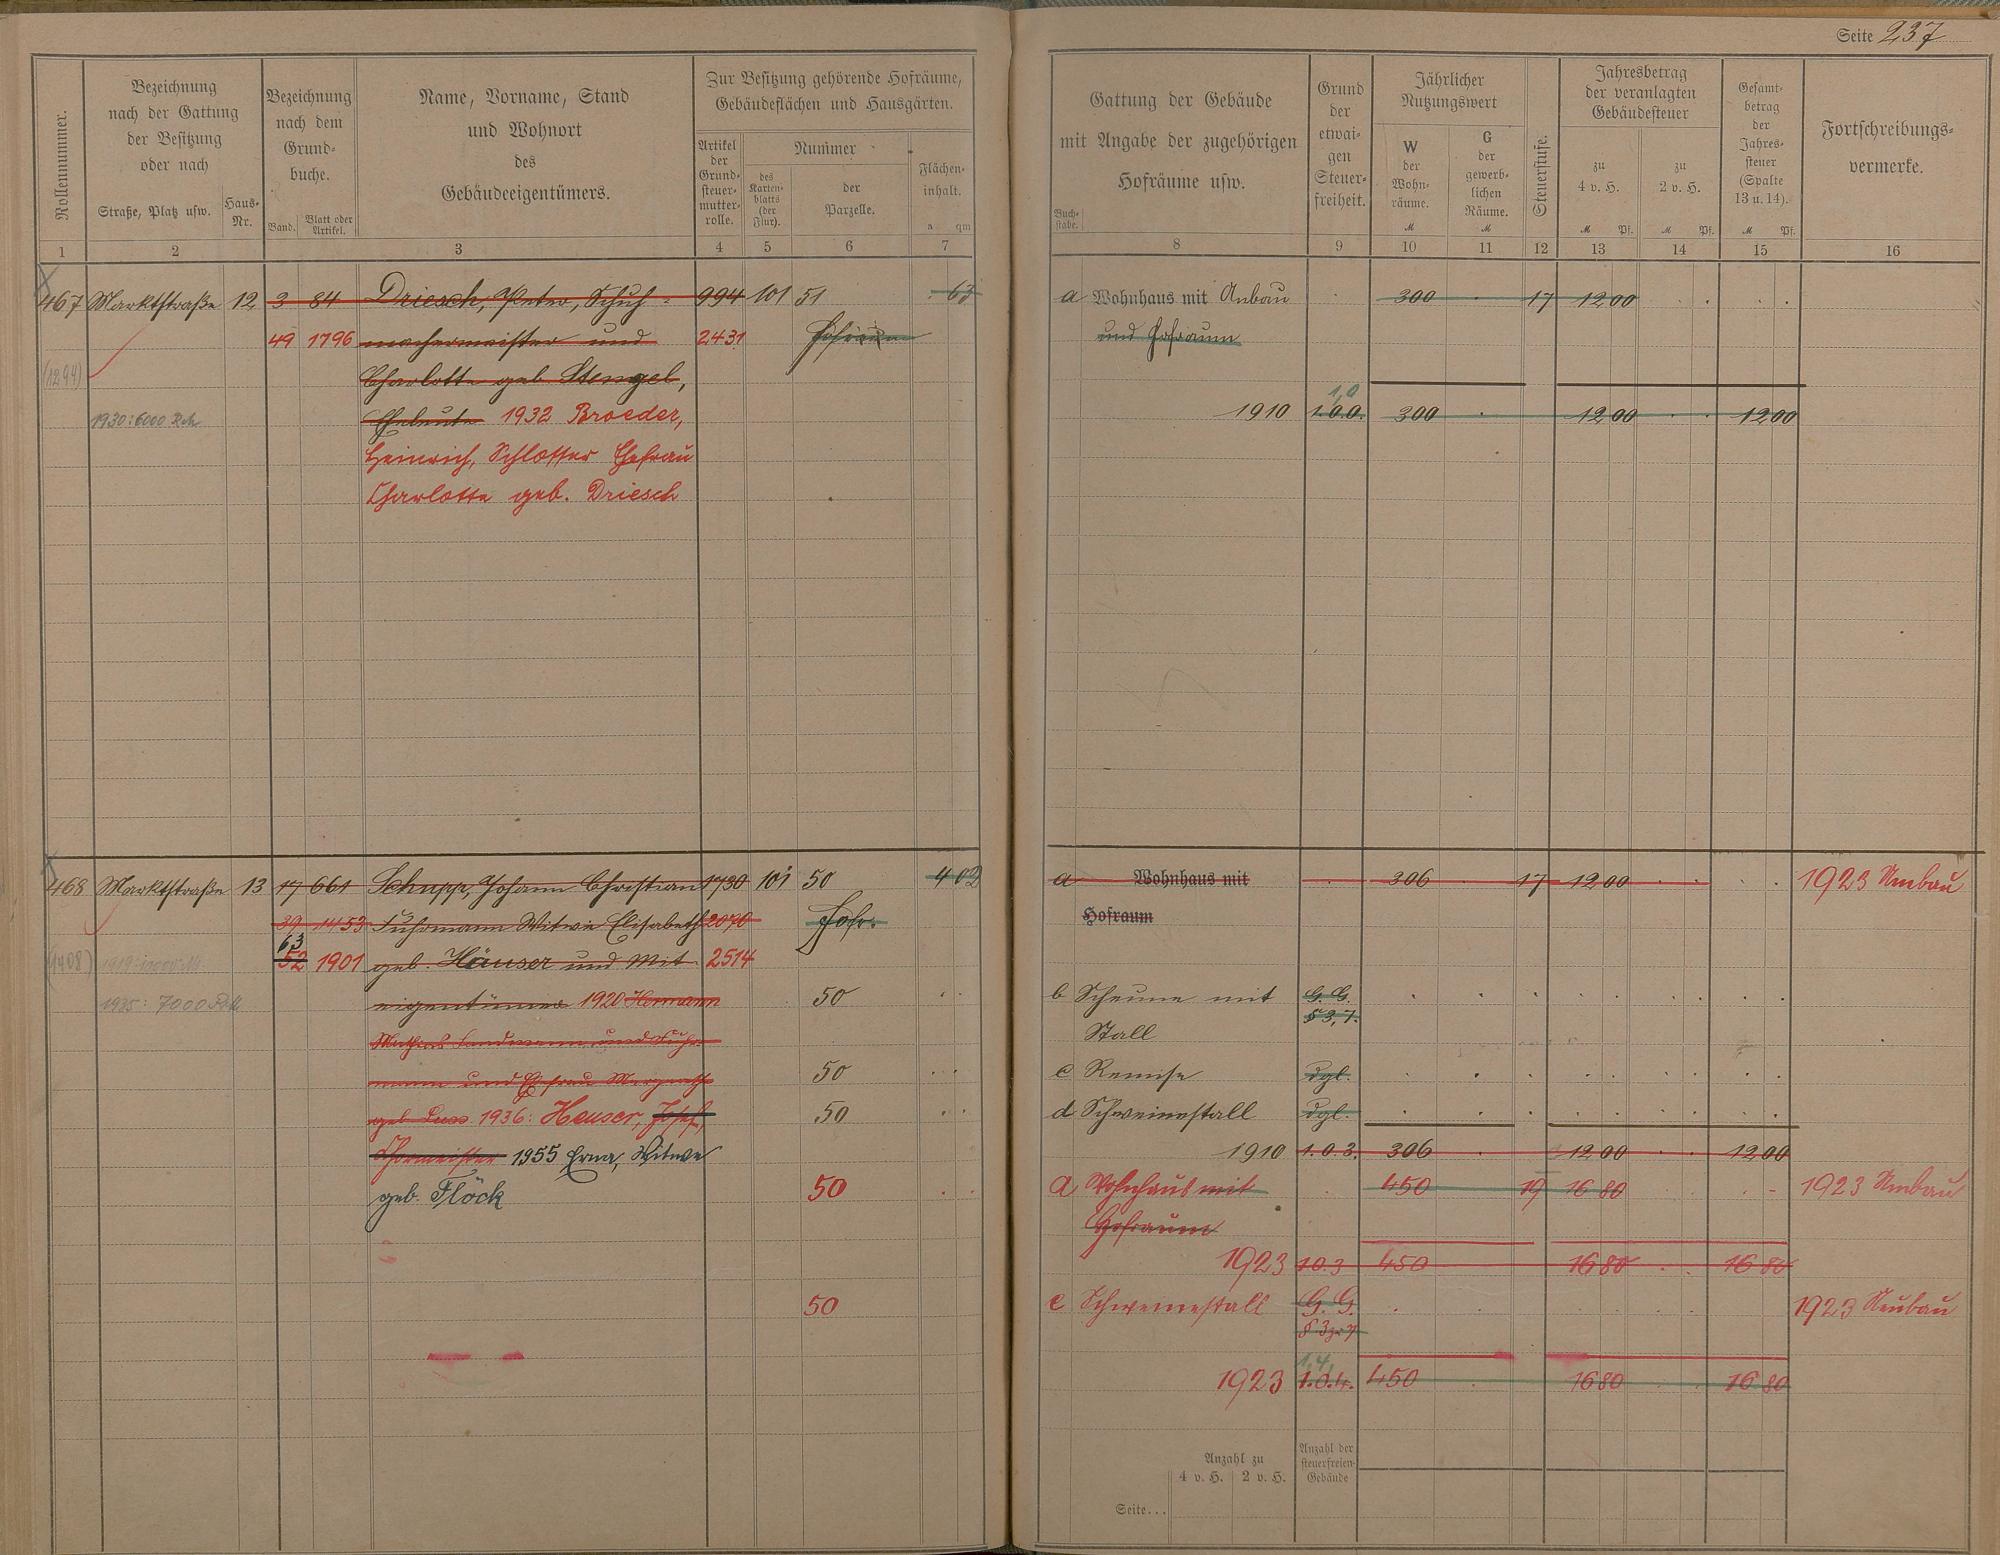 Seite 237
Rollennummer.
Bezeichnung
nach der Gattung
der Besitzung
oder nach
Straße, Platz usw.
Haus-
Nr.
Bezeichnung
nach dem
Grund-
buche.
Band.
Blatt oder
Artikel.
Name, Vorname, Stand
und Wohnort
des
Gebäudeeigentümers.
Zur Besitzung gehörende Hofräume,
Gebäudeflächen und Hausgärten.
Artikel
der
Grund-
steuer-
mutter-
rolle.
Nummer
des
Karten-
blatts
(der
Flur).
der
Parzelle.
Flächen-
inhalt.
a qm
1 2 3 4 5 6 7
467 Marktstraße 12 3 84 Driesch, Peter, Schuh- 994 101 51 63
49 1796 machermeister und 2431 Hofraum
(1294) Charlotte geb. Stengel,
1930: 6000 RM Eheleute 1932 Broeder,
Heinrich, Schlosser Ehefrau
Charlotte geb. Driesch
468 Marktstraße 13 17 661 Schupp, Johann Christian 1730 101 50 4 02
39 1453 Fuhrmann Witwe Elisabeth 2070 Hofr.
63
(1408) 52 1901 geb. Häuser und Mit- 2514
1935: 7000 RM eigentümer 1920 Hermann 50
Landmann und Fuhr-
mann und Ehefrau 50
geb. 1936: Heuser, Josef, 50
1955 Erna, Witwe
geb. Flöck 50
50
Gattung der Gebäude
mit Angabe der zugehörigen
Hofräume usw.
Buch-
stabe.
Grund
der
etwai-
gen
Steuer-
freiheit.
Jährlicher
Nutzungswert
W
der
Wohn-
räume.
M
G
der
gewerb-
lichen
Räume.
M
Steuerstufe.
Jahresbetrag
der veranlagten
Gebäudesteuer
zu
4 v. H.
M Pf.
zu
2 v. H.
M Pf.
Gesamt-
betrag
der
Jahres-
steuer
(Spalte
13 u. 14).
M Pf.
Fortschreibungs-
vermerke.
8 9 10 11 12 13 14 15 16
a Wohnhaus mit Anbau 300 17 12 00
und Hofraum
1,0
1910 1.0.0. 300 12 00 12 00
a Wohnhaus mit 306 17 12 00 1923 Umbau
Hofraum
b Scheune mit G. G.
Stall § 3, 7.
c Remise dgl.
d Schweinestall dgl.
1910 1.0.3. 306 12 00 12 00
a Wohnhaus mit 450 19 16 80 1923 Umbau
Hofraum
1923 1.0.3 450 16 80 16 80
e Schweinestall G. G. 1923 Neubau
1,4,
1923 1.0.4. 450 16 80 16 80
Anzahl zu
4 v. H. 2 v. H.
Anzahl der
steuerfreien
Gebäude
Seite...